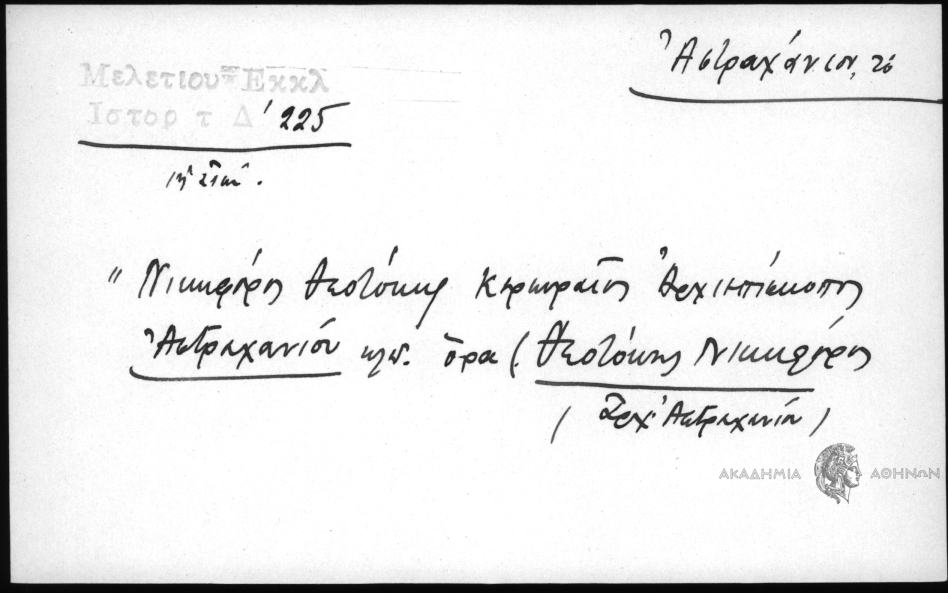 Ἀστραχάνιον, τό
Μελετίου Εκκλ
Ιστορ τ Δ' 225
ιη' αἰών.
" Νικηφόρος Θεοτόκης Κερκυραῖος Ἀρχιεπίσκοπος
Ἀστραχανίου κλπ. ὅρα (Θεοτόκης Νικηφόρος
( Ἀρχ. Ἀστραχανίου )
ΑΚΑΔΗΜΙΑ ΑΘΗΝΩΝ